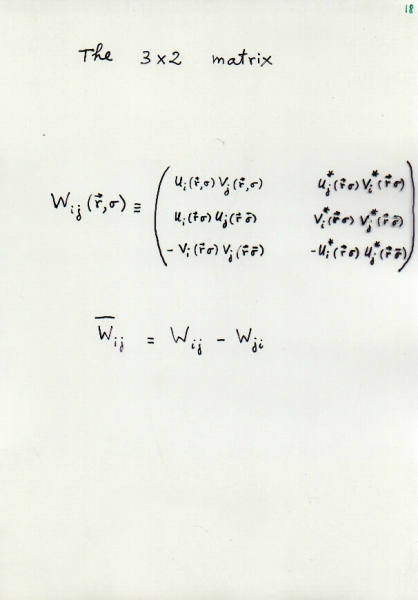 18
The 3×2 matrix
u_i(r⃗,σ) v_j(r⃗,σ) u_j^*(r⃗σ) v_i^*(r⃗σ)
W_{ij}(r⃗,σ) ≡ ( u_i(r⃗σ) u_j(r⃗σ̄) v_i^*(r⃗σ) v_j^*(r⃗σ̄) )
- v_i(r⃗σ) v_j(r⃗σ̄) - u_i^*(r⃗σ) u_j^*(r⃗σ̄)
W̅_{ij} = W_{ij} - W_{ji}